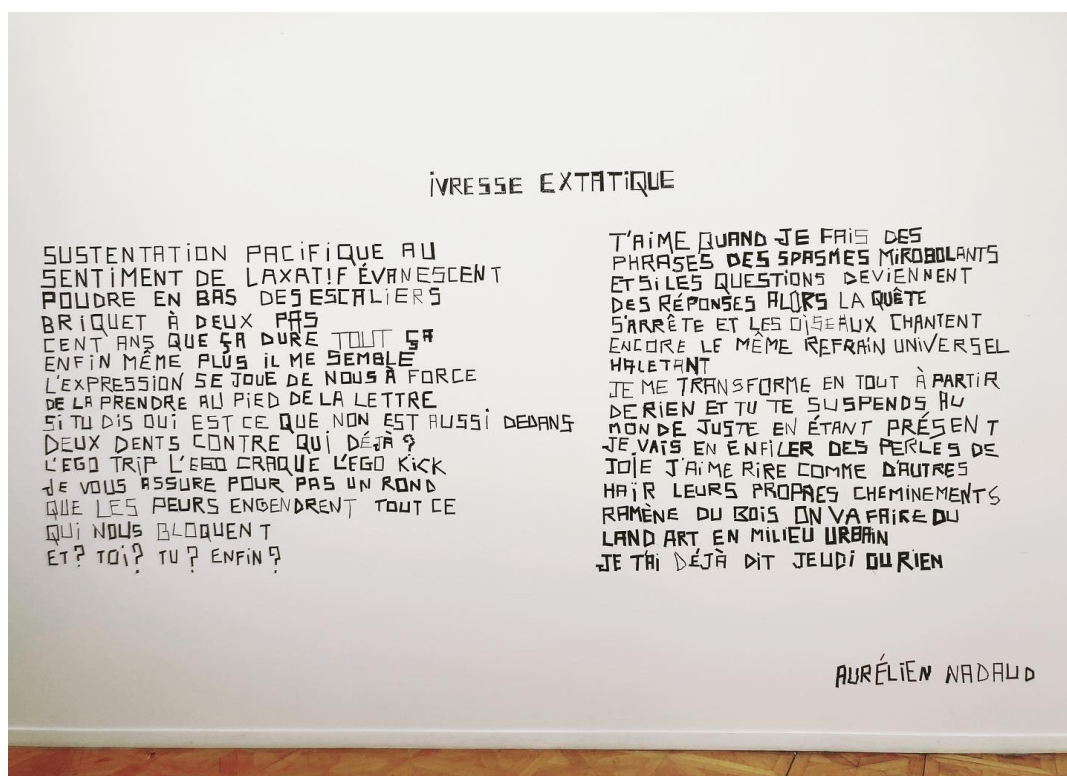 iVRESSE EXTATiQUE
SUSTENTATiON PACiFiQUE AU
SENTiMENT DE LAXAT!F ÉVANESCENT
POUDRE EN BAS DES ESCALiERS
BRiQUET À DEUX PAS
CENT ANS QUE ÇA DURE TOUT ÇA
ENFiN MÊME PLUS iL ME SEMBLE
L'EXPRESSiON SE JOUE DE NOUS À FORCE
DE LA PRENDRE AU PiED DE LA LETTRE
Si TU DiS OUi EST CE QUE NON EST AUSSi DEDANS
DEUX DENTS CONTRE QUi DÉJÀ ?
L'EGO TRiP L'EGO CRAQUE L'EGO KiCK
JE VOUS ASSURE POUR PAS UN ROND
QUE LES PEURS ENGENDRENT TOUT CE
QUi NOUS BLOQUENT
ET ? TOi ? TU ? ENFiN ?
T'AiME QUAND JE FAiS DES
PHRASES DES SPASMES MiROBOLANTS
ET Si LES QUESTiONS DEViENNENT
DES RÉPONSES ALORS LA QUÊTE
S'ARRÊTE ET LES OiSEAUX CHANTENT
ENCORE LE MÊME REFRAiN UNiVERSEL
HALETANT
JE ME TRANSFORME EN TOUT À PARTiR
DE RiEN ET TU TE SUSPENDS AU
MONDE JUSTE EN ÉTANT PRÉSENT
JE VAiS EN ENFiLER DES PERLES DE
JOiE J'AiME RiRE COMME D'AUTRES
HAïR LEURS PROPRES CHEMiNEMENTS
RAMÈNE DU BOiS ON VA FAiRE DU
LAND ART EN MiLiEU URBAiN
JE T'Ai DÉJÀ DiT JEUDi OU RiEN
AURÉLiEN NADAUD